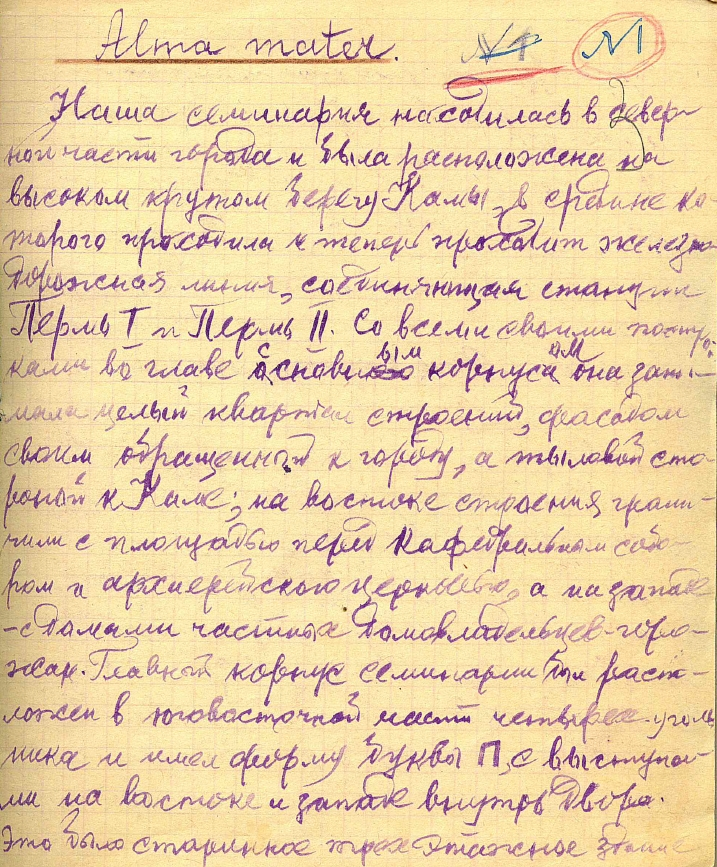 Alma mater. №1 №1
Наша семинария находилась в север-
ной части города и была расположена на
высоком крутом берегу Камы, в средине ко-
торого проходила и теперь проходит железно-
дорожная линия, соединяющая станции
Пермь I и Пермь II. Со всеми своими построй-
ками во главе с основным корпусом она зани-
мала целый квартал строений, фасадом
своим обращенный к городу, а тыловой сто-
роной к Каме; на востоке строения грани-
чили с площадью перед кафедральным собо-
ром и архиерейскою церковью, а на западе
– с домами частных домовладельцев-горо-
жан. Главный корпус семинарии был распо-
ложен в юговосточной части четырех-уголь
ника и имел форму буквы П, с выступа-
ми на востоке и западе внутрь двора.
Это было старинное трех этажное здание